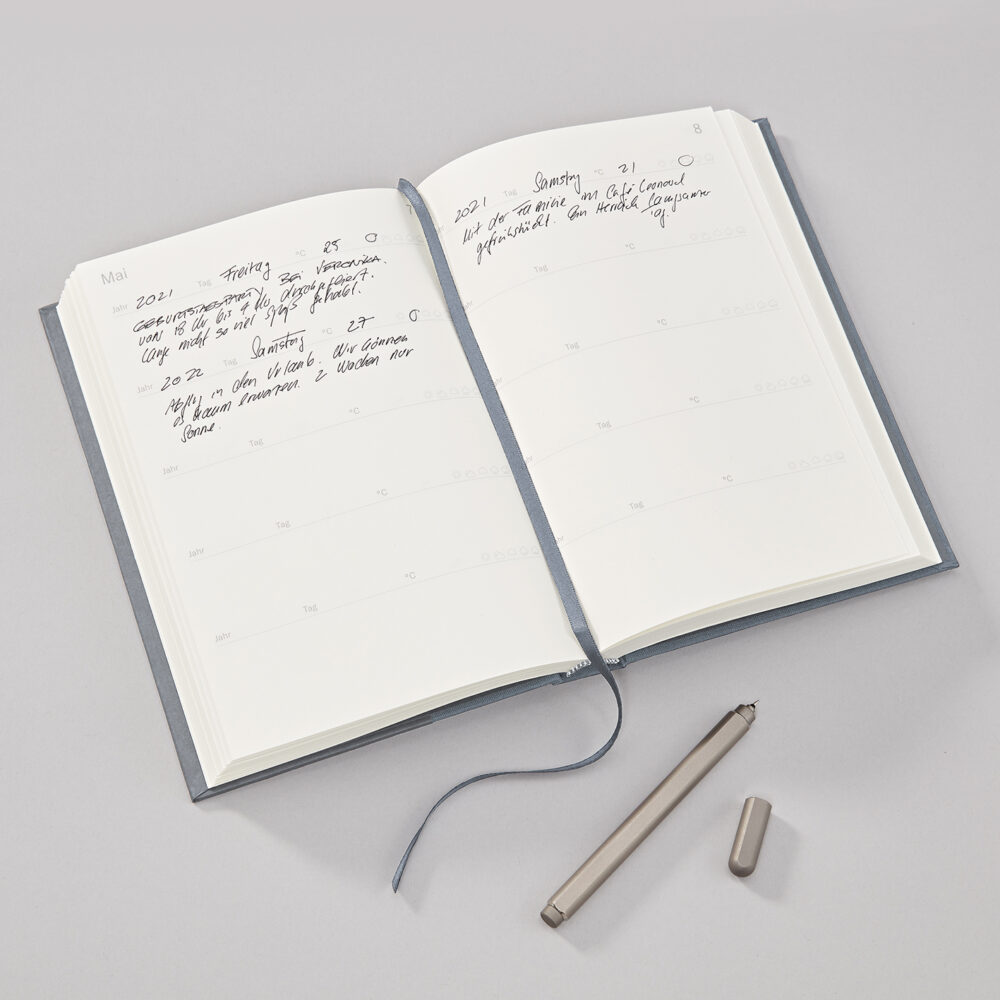 Mai
7
Jahr 2021 Tag Freitag °C 25
GEBURTSTAGSPARTY BEI VERONIKA.
von 18 Uhr bis 4 Uhr durchgefeiert.
Lange nicht so viel Spaß gehabt.
Jahr 2022 Tag Samstag °C 27
Abflug in den Urlaub. Wir können
es kaum erwarten. 2 Wochen nur
Sonne.
Jahr Tag °C
Jahr Tag °C
Jahr Tag °C
8
2021 Tag Samstag °C 21
Mit der Familie im Café Leonard
gefrühstückt. Ein Herrlich langsamer
Tag °C
Tag °C
Tag °C
Tag °C